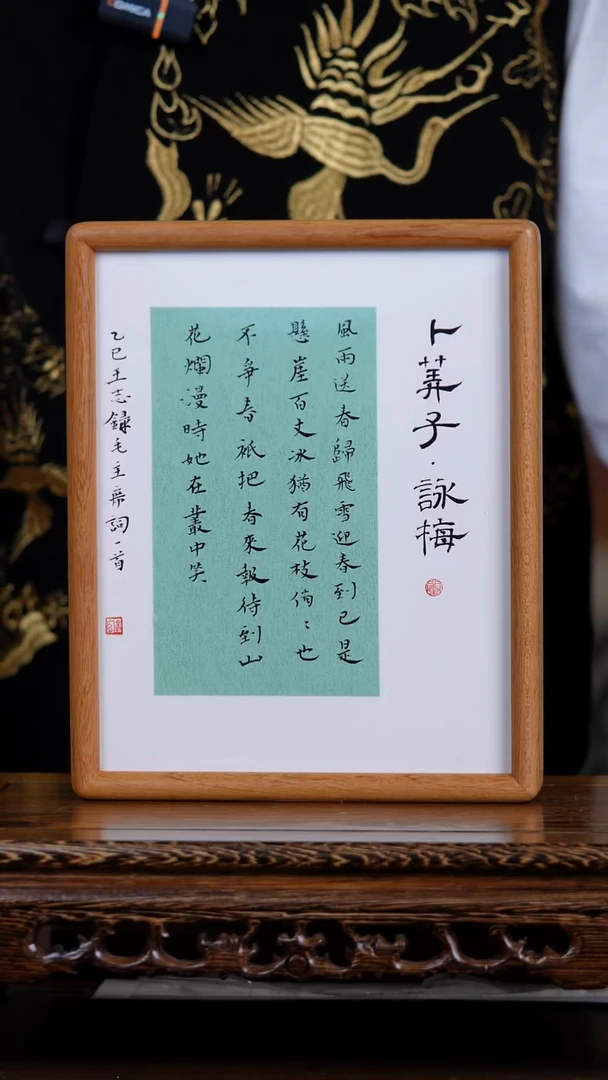 卜筭子·詠梅
風雨送春歸飛雪迎春到已是
懸崖百丈冰猶有花枝俏〻也
不爭春祇把春來報待到山
花爛漫時她在叢中笑
乙巳王志録毛主席詞一首